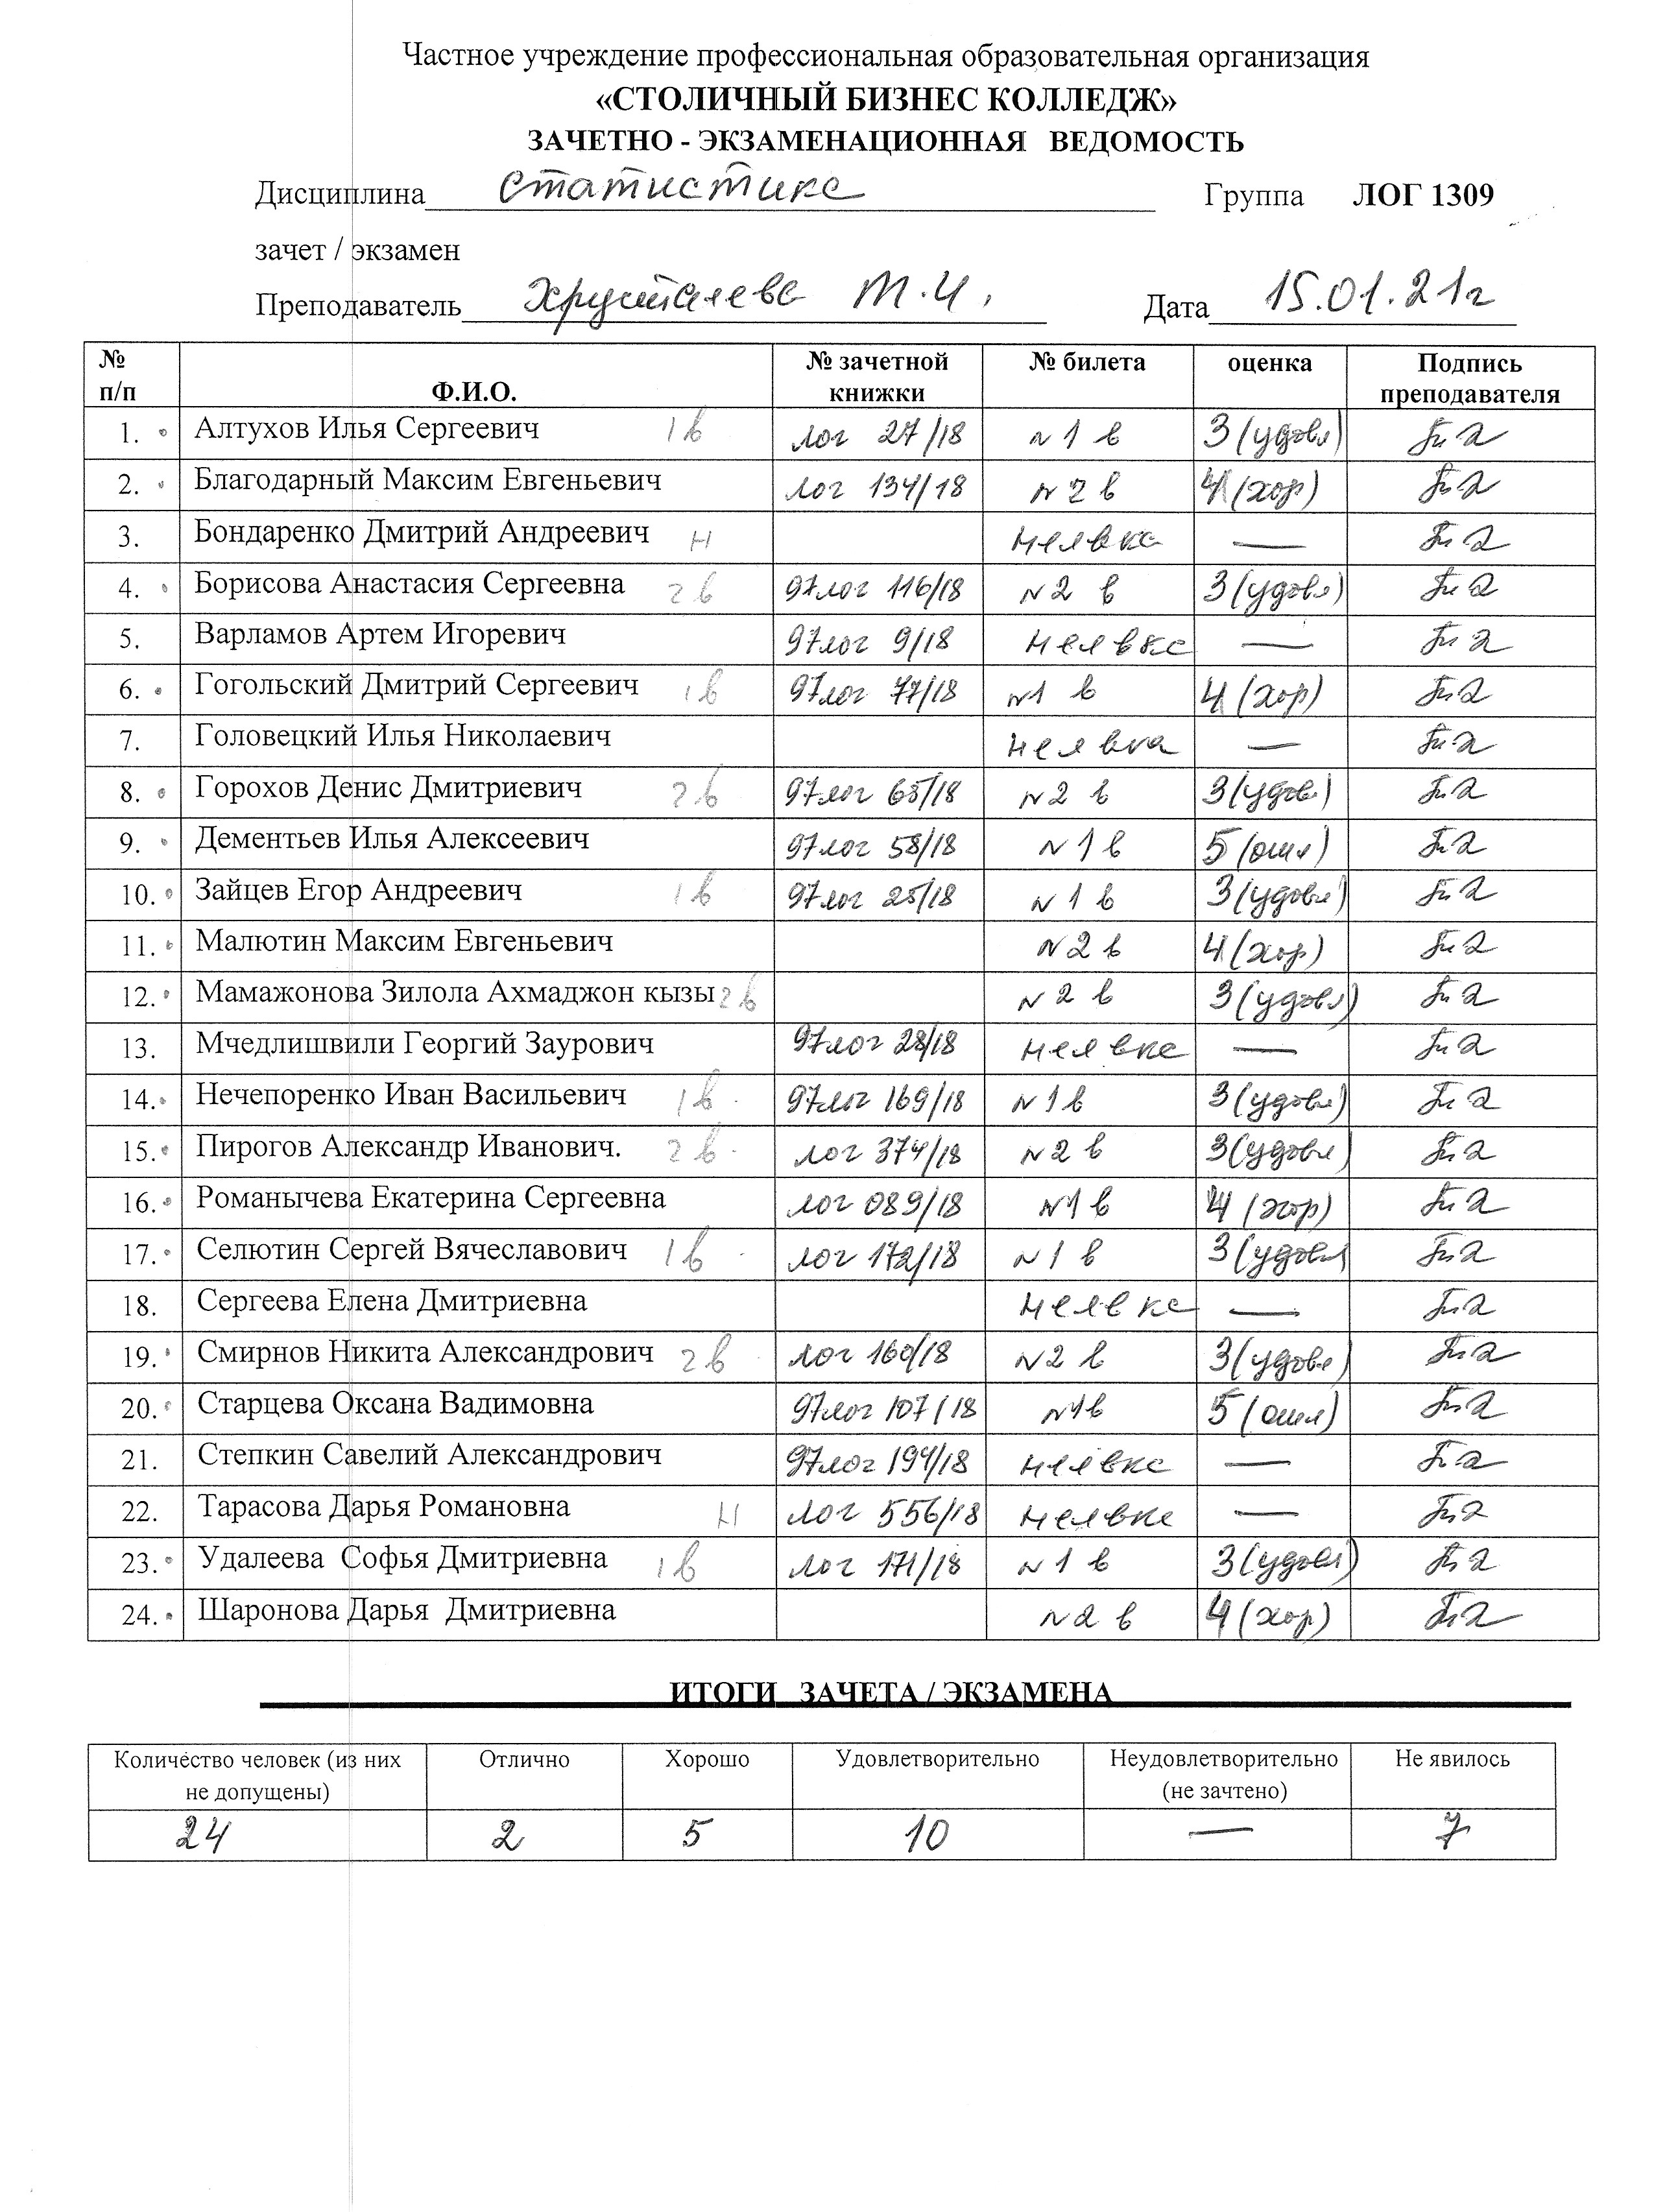 Частное учреждение профессиональная образовательная организация
«СТОЛИЧНЫЙ БИЗНЕС КОЛЛЕДЖ»
ЗАЧЕТНО - ЭКЗАМЕНАЦИОННАЯ ВЕДОМОСТЬ
Дисциплина статистика Группа ЛОГ 1309
зачет / экзамен
Преподаватель Хрусталева Т.Ч. Дата 15.01.21г
№ п/п Ф.И.О. № зачетной книжки № билета оценка Подпись преподавателя
1. Алтухов Илья Сергеевич 1в лог 27/18 №1 в 3 (удовл)
2. Благодарный Максим Евгеньевич лог 134/18 №2 в 4 (хор)
3. Бондаренко Дмитрий Андреевич н неявка —
4. Борисова Анастасия Сергеевна 2в 97лог 116/18 №2 в 3 (удовл)
5. Варламов Артем Игоревич 97лог 9/18 неявка —
6. Гогольский Дмитрий Сергеевич 1в 97лог 77/18 №1 в 4 (хор)
7. Головецкий Илья Николаевич неявка —
8. Горохов Денис Дмитриевич 2в 97лог 65/18 №2 в 3 (удовл)
9. Дементьев Илья Алексеевич 97лог 58/18 №1 в 5 (отл)
10. Зайцев Егор Андреевич 1в 97лог 25/18 №1 в 3 (удовл)
11. Малютин Максим Евгеньевич №2 в 4 (хор)
12. Мамажонова Зилола Ахмаджон кызы 2в №2 в 3 (удовл)
13. Мчедлишвили Георгий Заурович 97лог 28/18 неявка —
14. Нечепоренко Иван Васильевич 1в 97лог 169/18 №1 в 3 (удовл)
15. Пирогов Александр Иванович. 2в лог 374/18 №2 в 3 (удовл)
16. Романычева Екатерина Сергеевна лог 089/18 №1 в 4 (хор)
17. Селютин Сергей Вячеславович 1в лог 172/18 №1 в 3 (удовл)
18. Сергеева Елена Дмитриевна неявка —
19. Смирнов Никита Александрович 2в лог 160/18 №2 в 3 (удовл)
20. Старцева Оксана Вадимовна 97лог 107/18 №1в 5 (отл)
21. Степкин Савелий Александрович 97лог 194/18 неявка —
22. Тарасова Дарья Романовна н лог 556/18 неявка —
23. Удалеева Софья Дмитриевна 1в лог 171/18 №1 в 3 (удовл)
24. Шаронова Дарья Дмитриевна №2 в 4 (хор)
ИТОГИ ЗАЧЕТА / ЭКЗАМЕНА
Количество человек (из них не допущены) Отлично Хорошо Удовлетворительно Неудовлетворительно (не зачтено) Не явилось
24 2 5 10 — 7